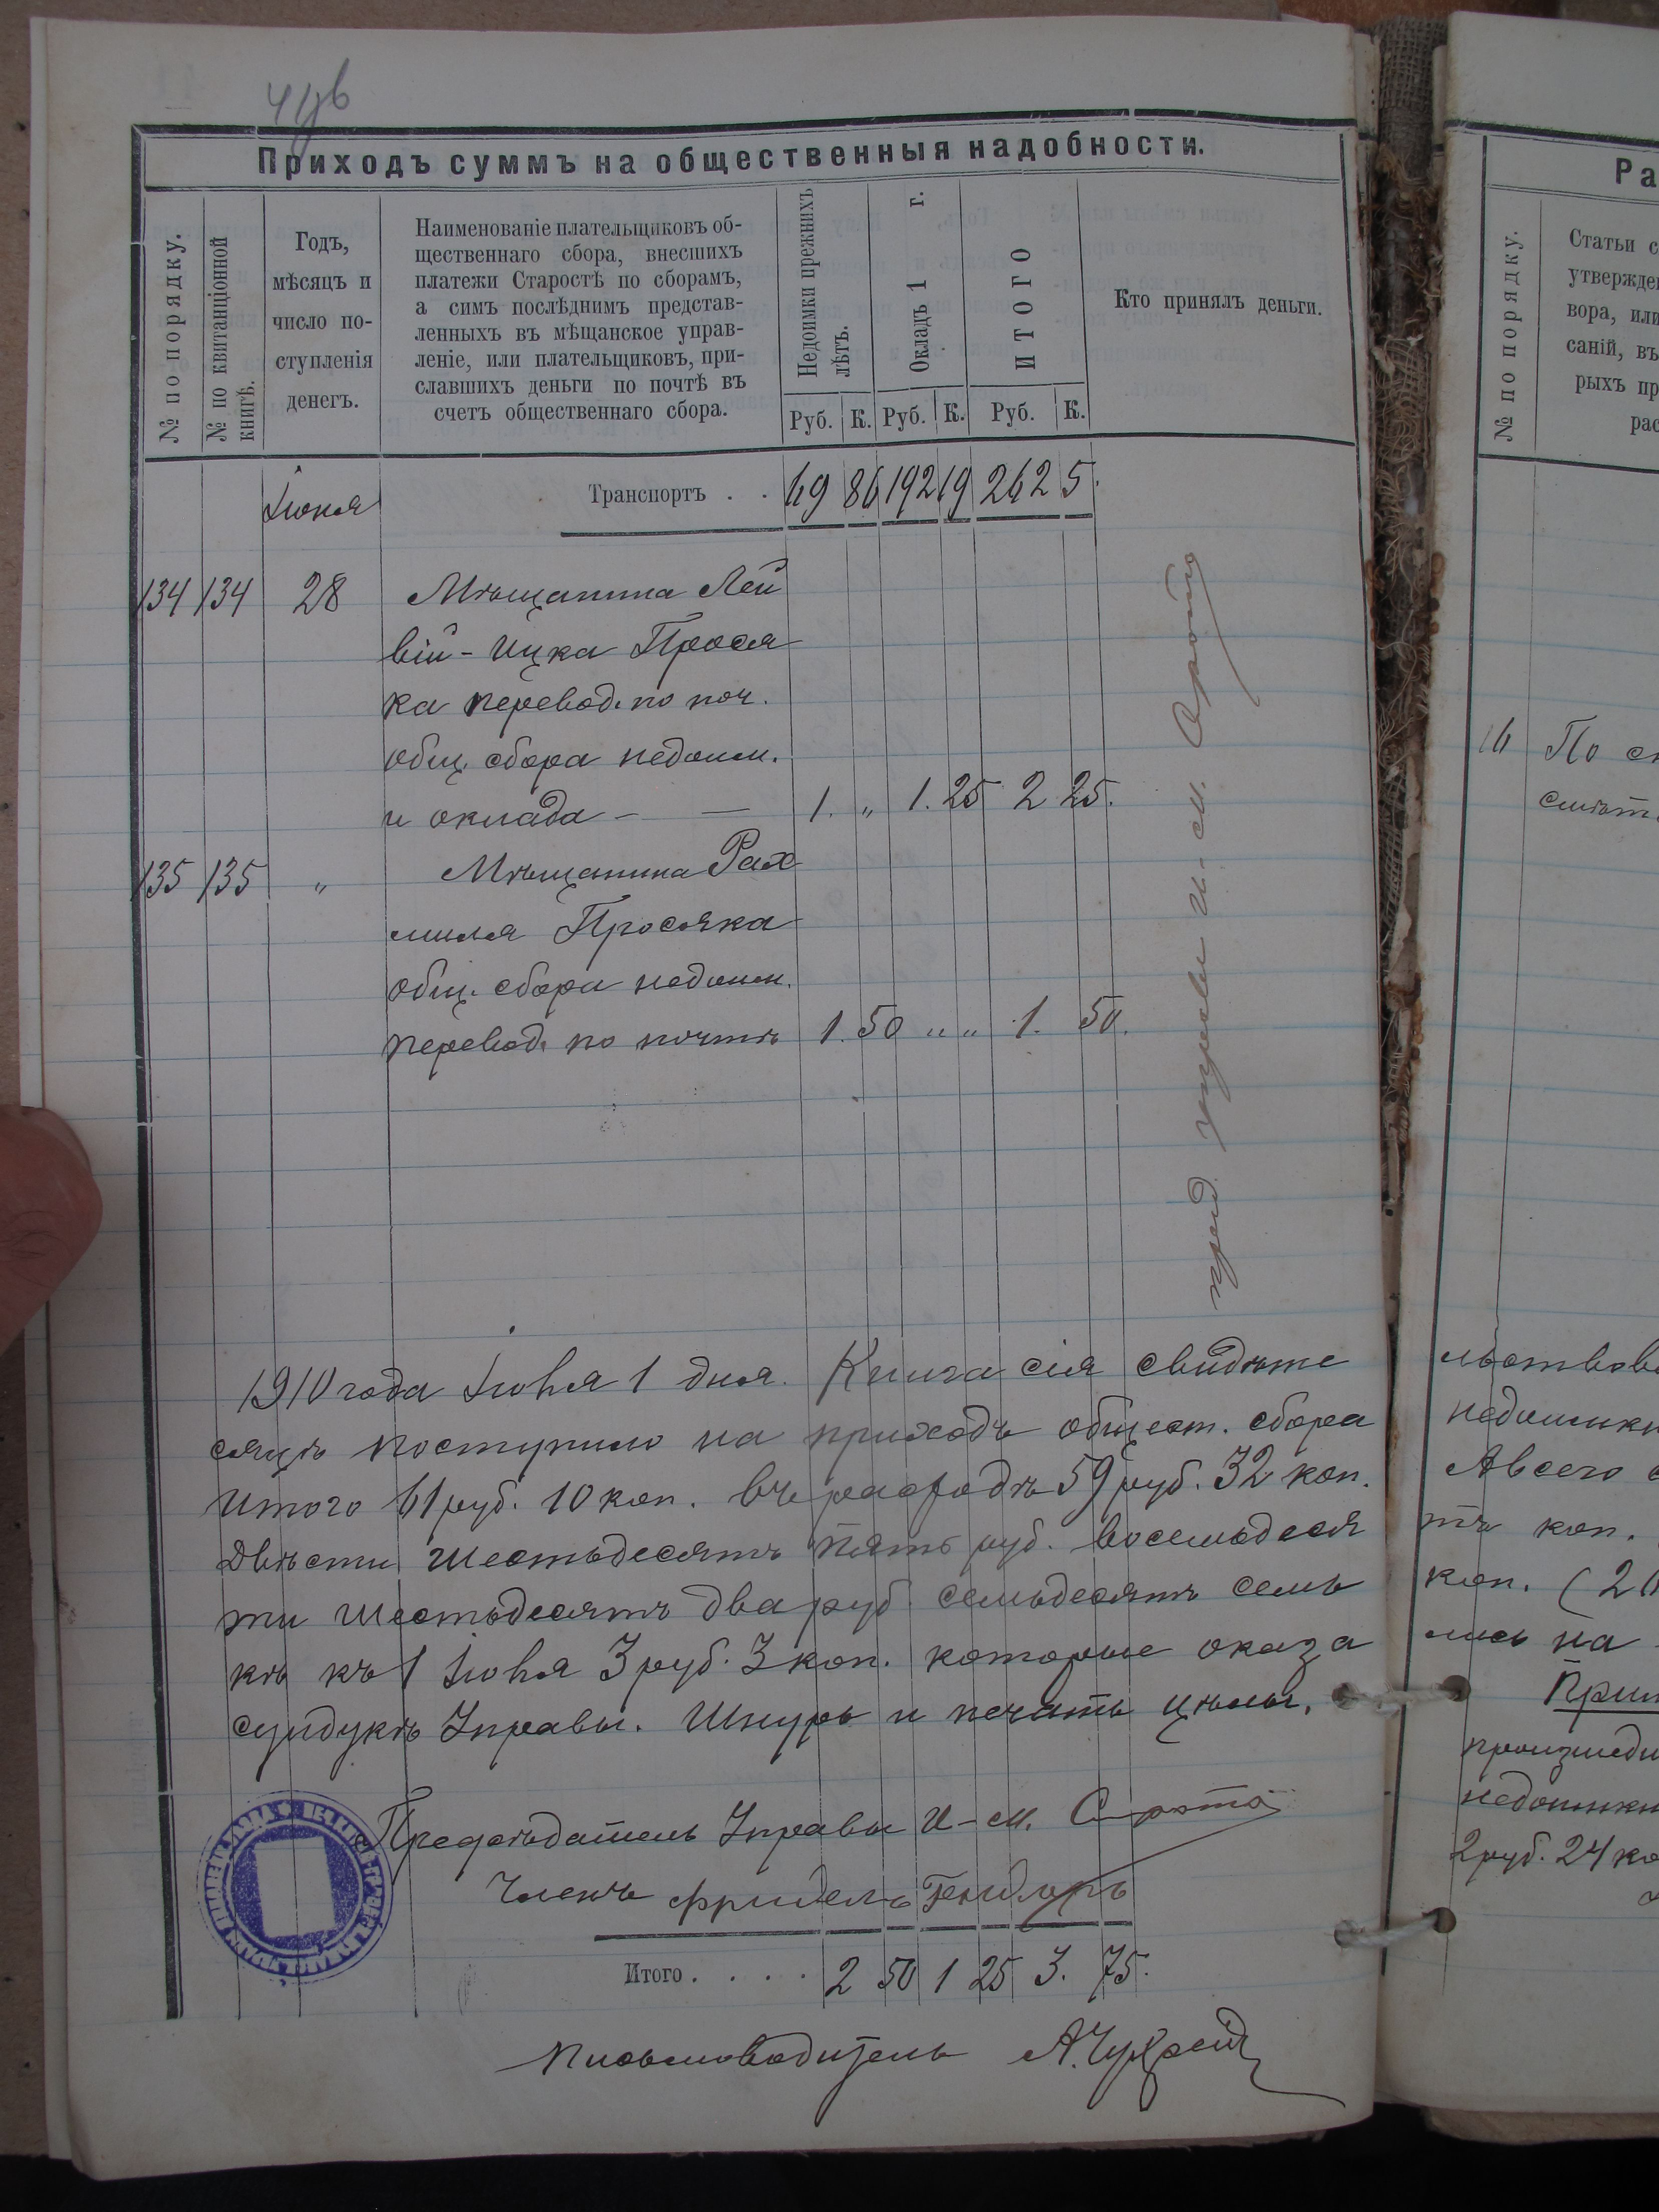 Приходъ суммъ на общественныя надобности.
№ по порядку.
№ по квитанціонной
книгѣ.
Годъ,
мѣсяцъ и
число по-
ступленія
денегъ.
Наименованіе плательщиковъ об-
щественнаго сбора, внесшихъ
платежи Старостѣ по сборамъ,
а симъ послѣднимъ представ-
ленныхъ въ мѣщанское управ-
леніе, или плательщиковъ, при-
славшихъ деньги по почтѣ въ
счетъ общественнаго сбора.
Недоимки прежнихъ
лѣтъ.
Окладъ 1 г.
ИТОГО
Руб. К. Руб. К. Руб. К.
Кто принялъ деньги.
Іюня
Транспортъ . . 69 86 192 19 262 5.
134 134 28 Мѣщанина Лей
вій-Ицка Прося
ка перевод. по поч.
общ. сбора недоим.
и оклада - — 1. „ 1. 25 2 25.
135 135 „ Мѣщанина Рах
миля Просяка
общ. сбора недоим.
перевод. по почтѣ 1. 50 „ „ 1. 50.
пред. управы И.-м. Сирота
1910 года Іюля 1 дня. Книга сія свидѣте
сяцѣ поступило на приходъ общест. сбора
Итого 61 руб. 10 коп. въ расходъ 59 руб. 32 коп.
Двѣсти шестьдесятъ пять руб. восемьдеся
ти шестьдесятъ два руб. семьдесятъ семь
кѣ къ 1 Іюля 3 руб. 3 коп. которые оказа
сундукѣ Управы. Шнуръ и печать цѣлы.
Предсѣдатель Управы И-м. Сирота
Членъ Фридель Гендлеръ
Итого . . . . 2 50 1 25 3. 75.
Письмоводитель
Ра
№ по порядку.
Статьи с
утвержде
вора, или
саній, въ
рыхъ пр
рас
16 По с
смѣт
льствов
недоимки
А всего
тъ коп.
коп. (2
лись на
Прим
произшеди
недоимки
2 руб. 24 ко